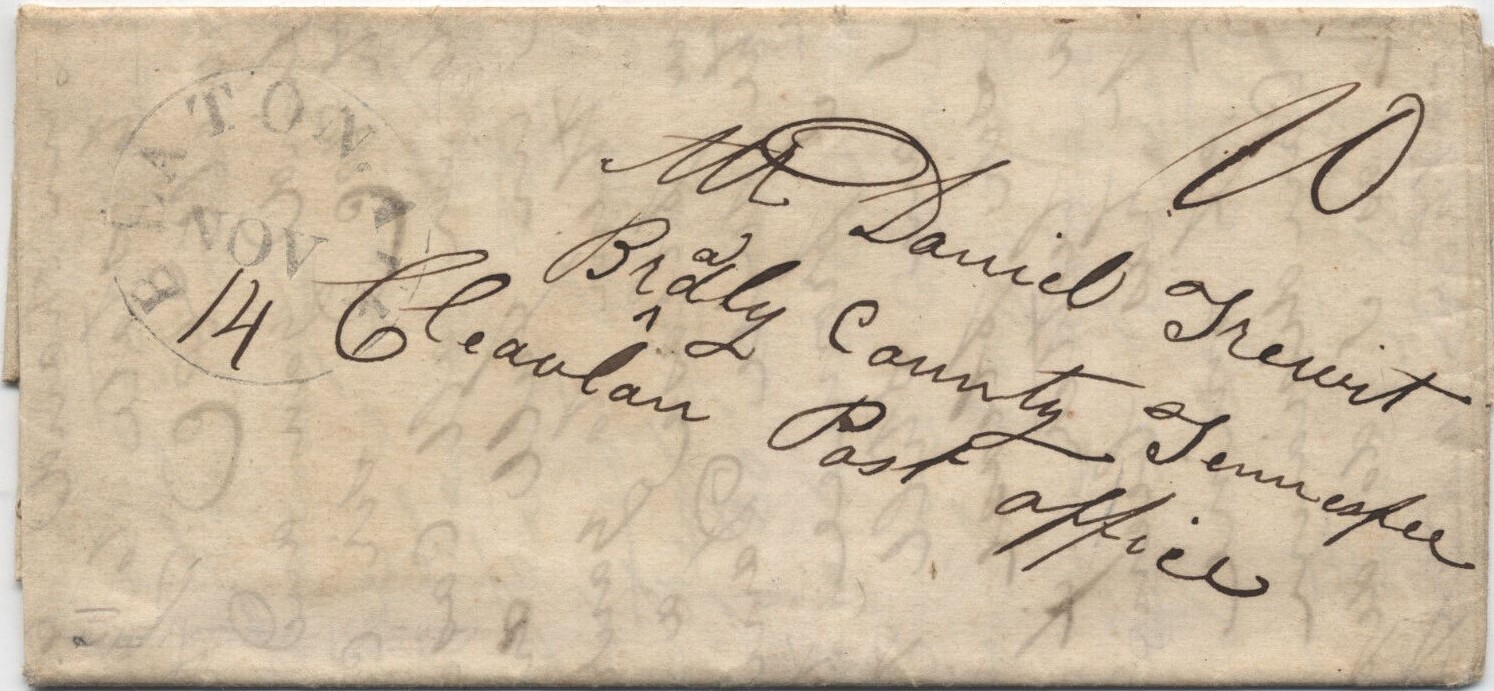 NOV
14
10
Mr Daniel Trewit
Bradly County Tennessee
Cleavlan Post office